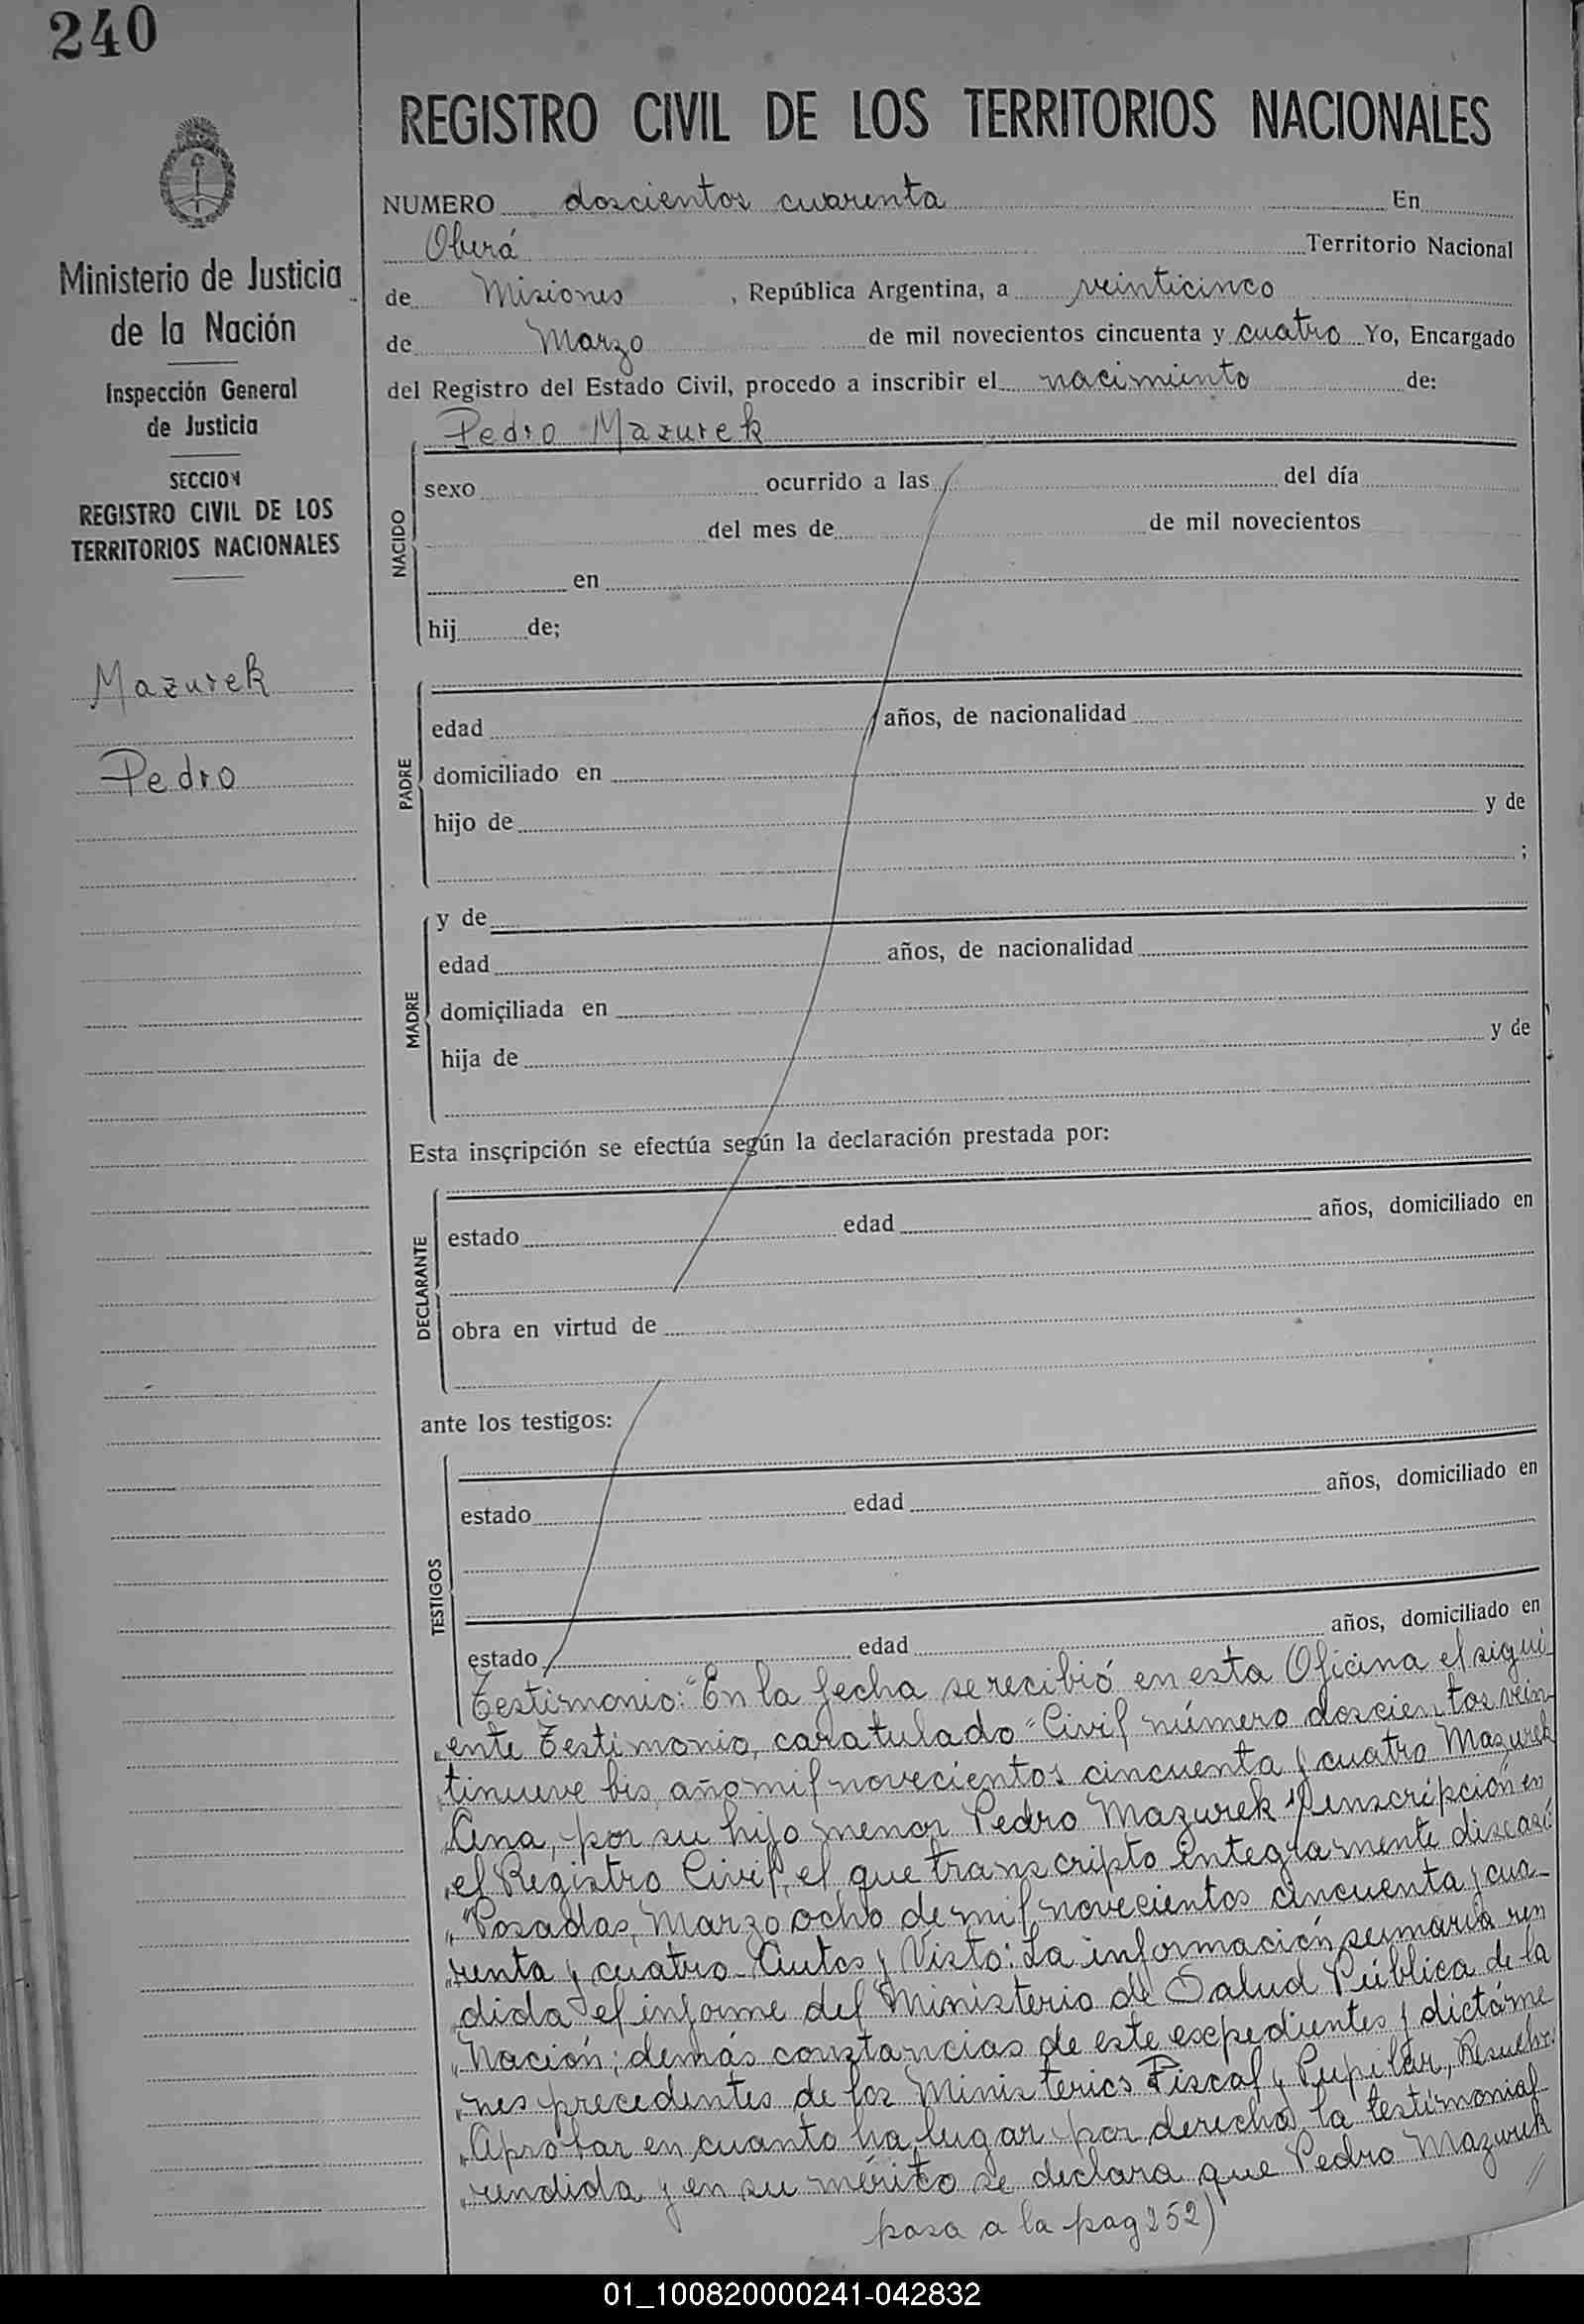 240
REGISTRO CIVIL DE LOS TERRITORIOS NACIONALES
Ministerio de Justicia
de la Nación
Inspección General
de Justicia
SECCION
REGISTRO CIVIL DE LOS
TERRITORIOS NACIONALES
Mazurek
Pedro
NUMERO doscientos cuarenta En
Oberá Territorio Nacional
de Misiones , República Argentina, a veinticinco
de Marzo de mil novecientos cincuenta y cuatro Yo, Encargado
del Registro del Estado Civil, procedo a inscribir el nacimiento de:
Pedro Mazurek
NACIDO
sexo ocurrido a las del día
del mes de de mil novecientos
en
hij de;
PADRE
edad años, de nacionalidad
domiciliado en
hijo de y de
;
MADRE
y de
edad años, de nacionalidad
domiciliada en
hija de y de
Esta inscripción se efectúa según la declaración prestada por:
DECLARANTE
estado edad años, domiciliado en
obra en virtud de
ante los testigos:
TESTIGOS
estado edad años, domiciliado en
estado edad años, domiciliado en
Testimonio: "En la fecha se recibió en esta Oficina el sigui
"ente Testimonio, caratulado "Civil número doscientos vein-
"tinueve bis, año mil novecientos cincuenta y cuatro Mazurek
"Ana, por su hijo menor Pedro Mazurek s/inscripción en
"el Registro Civil, el que transcripto integramente dice así:
"Posadas, Marzo ocho de mil novecientos cincuenta y cua-
"renta y cuatro - Autos y Visto: La información sumaria ren
"dida el informe del Ministerio de Salud Pública de la
"Nación; demás constancias de este expedientes y dictáme
"nes precedentes de los Ministerios Fiscal y Pupilar, Resuelvo:
"Aprobar en cuanto ha lugar por derecho la testimonial
"rendida y en su mérito se declara que Pedro Mazurek
pasa a la pag 252) //
01_100820000241-042832